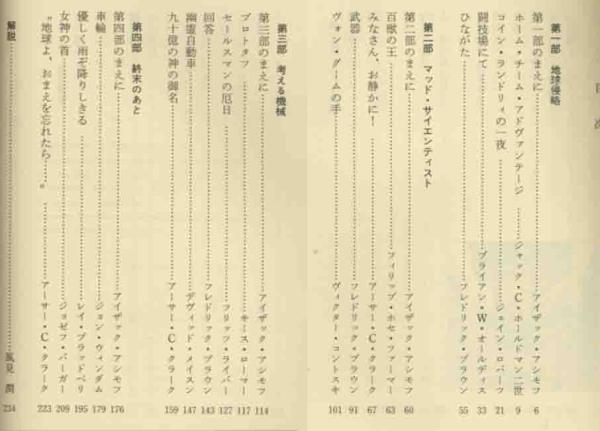 目次
第一部　地球侵略
第一部のまえに……アイザック・アシモフ 6
ホーム・チーム・アドヴァンテージ……ジャック・C・ホールドマン二世 9
コイン・ランドリィの一夜……ジェイン・ロバーツ 21
闘技場にて……ブライアン・W・オールディス 33
ひながた……フレドリック・ブラウン 55
第二部　マッド・サイエンティスト
第二部のまえに……アイザック・アシモフ 60
百獣の王……フィリップ・ホセ・ファーマー 63
みなさん、お静かに！……アーサー・C・クラーク 67
武器……フレドリック・ブラウン 91
ヴォン・グームの手……ヴィクター・コントスキ 101
第三部　考える機械
第三部のまえに……アイザック・アシモフ 114
プロトタフ……キース・ローマー 117
セールスマンの厄日……フリッツ・ライバー 127
回答……フレドリック・ブラウン 143
幽霊自動車……デヴィッド・メイスン 147
九十億の神の御名……アーサー・C・クラーク 159
第四部　終末のあと
第四部のまえに……アイザック・アシモフ 176
車輪……ジョン・ウィンダム 179
優しく雨ぞ降りしきる……レイ・ブラッドベリ 195
女神の首……ジョゼフ・パーガー 209
“地球よ、おまえを忘れたら……”……アーサー・C・クラーク 223
解説……風見　潤 234